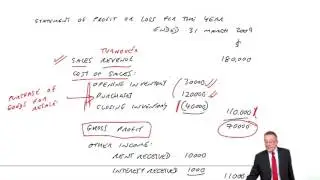 STATEMENT OF PROFIT OR LOSS FOR THE YEAR
ENDED 31 MARCH 2009
$
TURNOVER
SALES REVENUE 180,000
COST OF SALES:
OPENING INVENTORY (30000)
PURCHASES (120000)
CLOSING INVENTORY (40000) 110,000
PURCHASE OF GOODS FOR RESALE
GROSS PROFIT 70000
OTHER INCOME:
RENT RECEIVED 10000
INTEREST RECEIVED 1000 11000